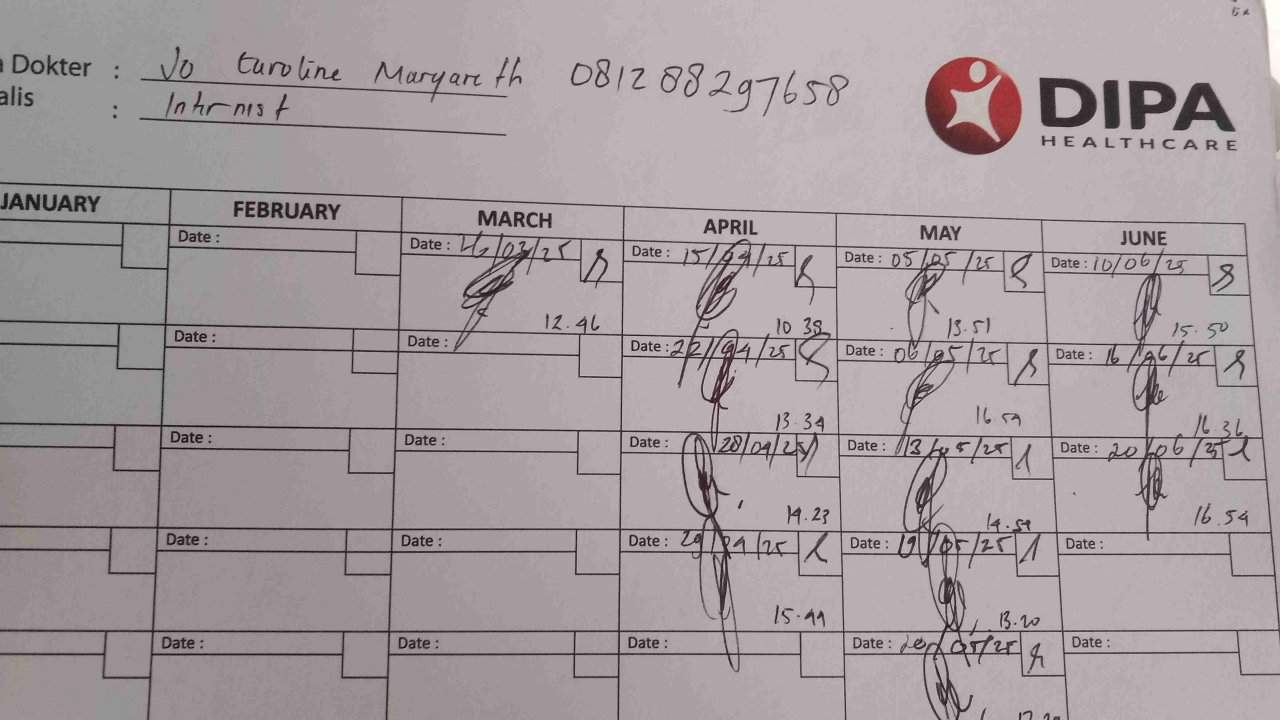 a Dokter : Jo Caroline Margareth 081288297658
alis : Internist
DIPA
HEALTHCARE
JANUARY FEBRUARY MARCH APRIL MAY JUNE
Date : Date : 26/03/25 Date : 15/04/25 Date : 05/05/25 Date : 10/06/25
12.46 10.38 13.51 15.50
Date : Date : Date : 22/04/25 Date : 06/05/25 Date : 16/06/25
13.34 16.59 16.36
Date : Date : Date : 28/04/25 Date : 13/05/25 Date : 20/06/25
14.23 14.59 16.54
Date : Date : Date : 29/04/25 Date : 19/05/25 Date :
15.44 13.20
Date : Date : Date : Date : 20/05/25 Date :